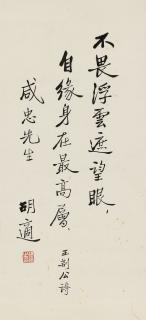 不畏浮雲遮望眼，
自緣身在最高層．
王荊公詩
咸忠先生
胡適